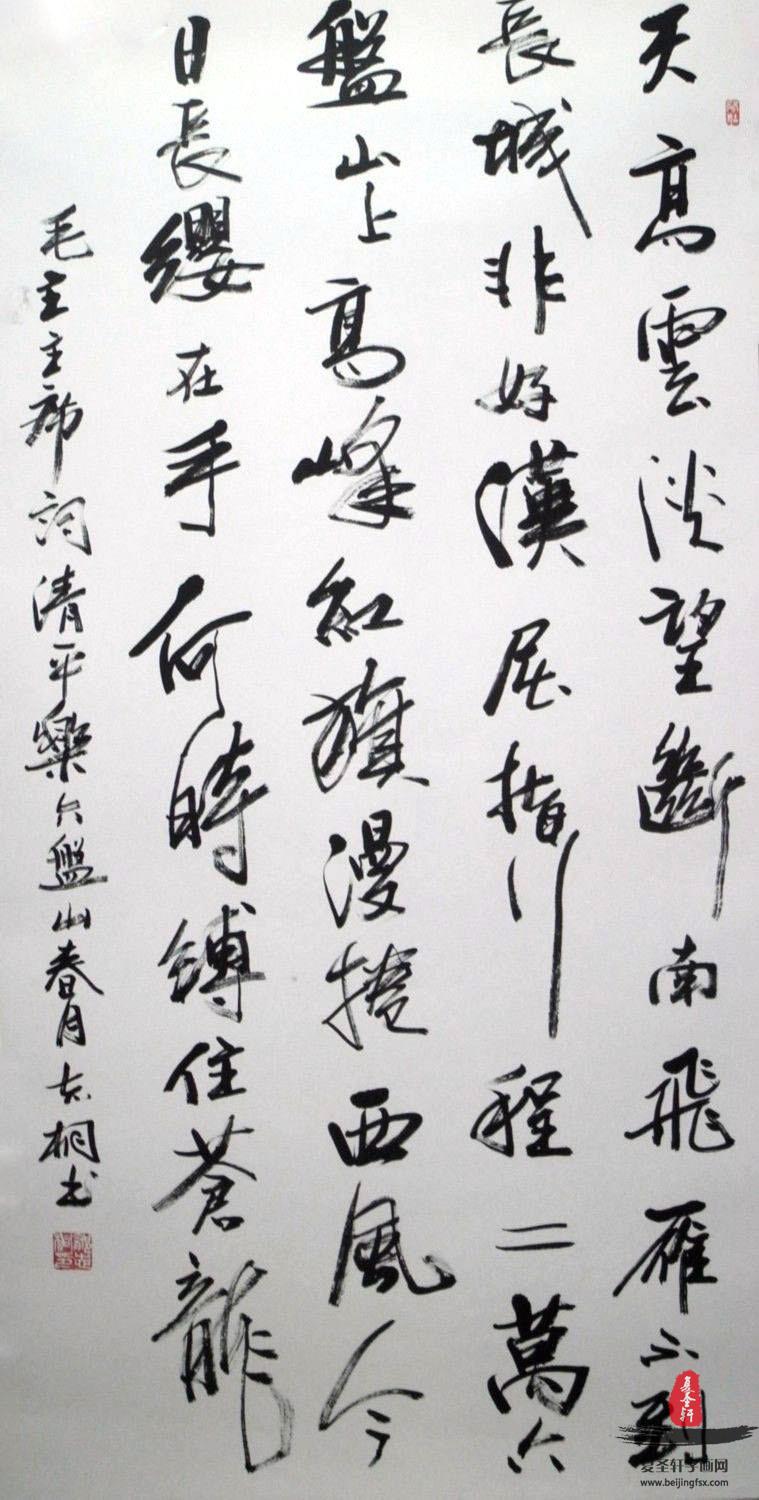 天高雲淡望斷南飛雁不到
長城非好漢屈指行程二萬六
盤山上高峰紅旗漫捲西風今
日長纓在手何時縛住蒼龍
毛主主席詞清平樂六盤山春月志桐书
复圣轩
复圣轩字画网
www.beijingfsx.com